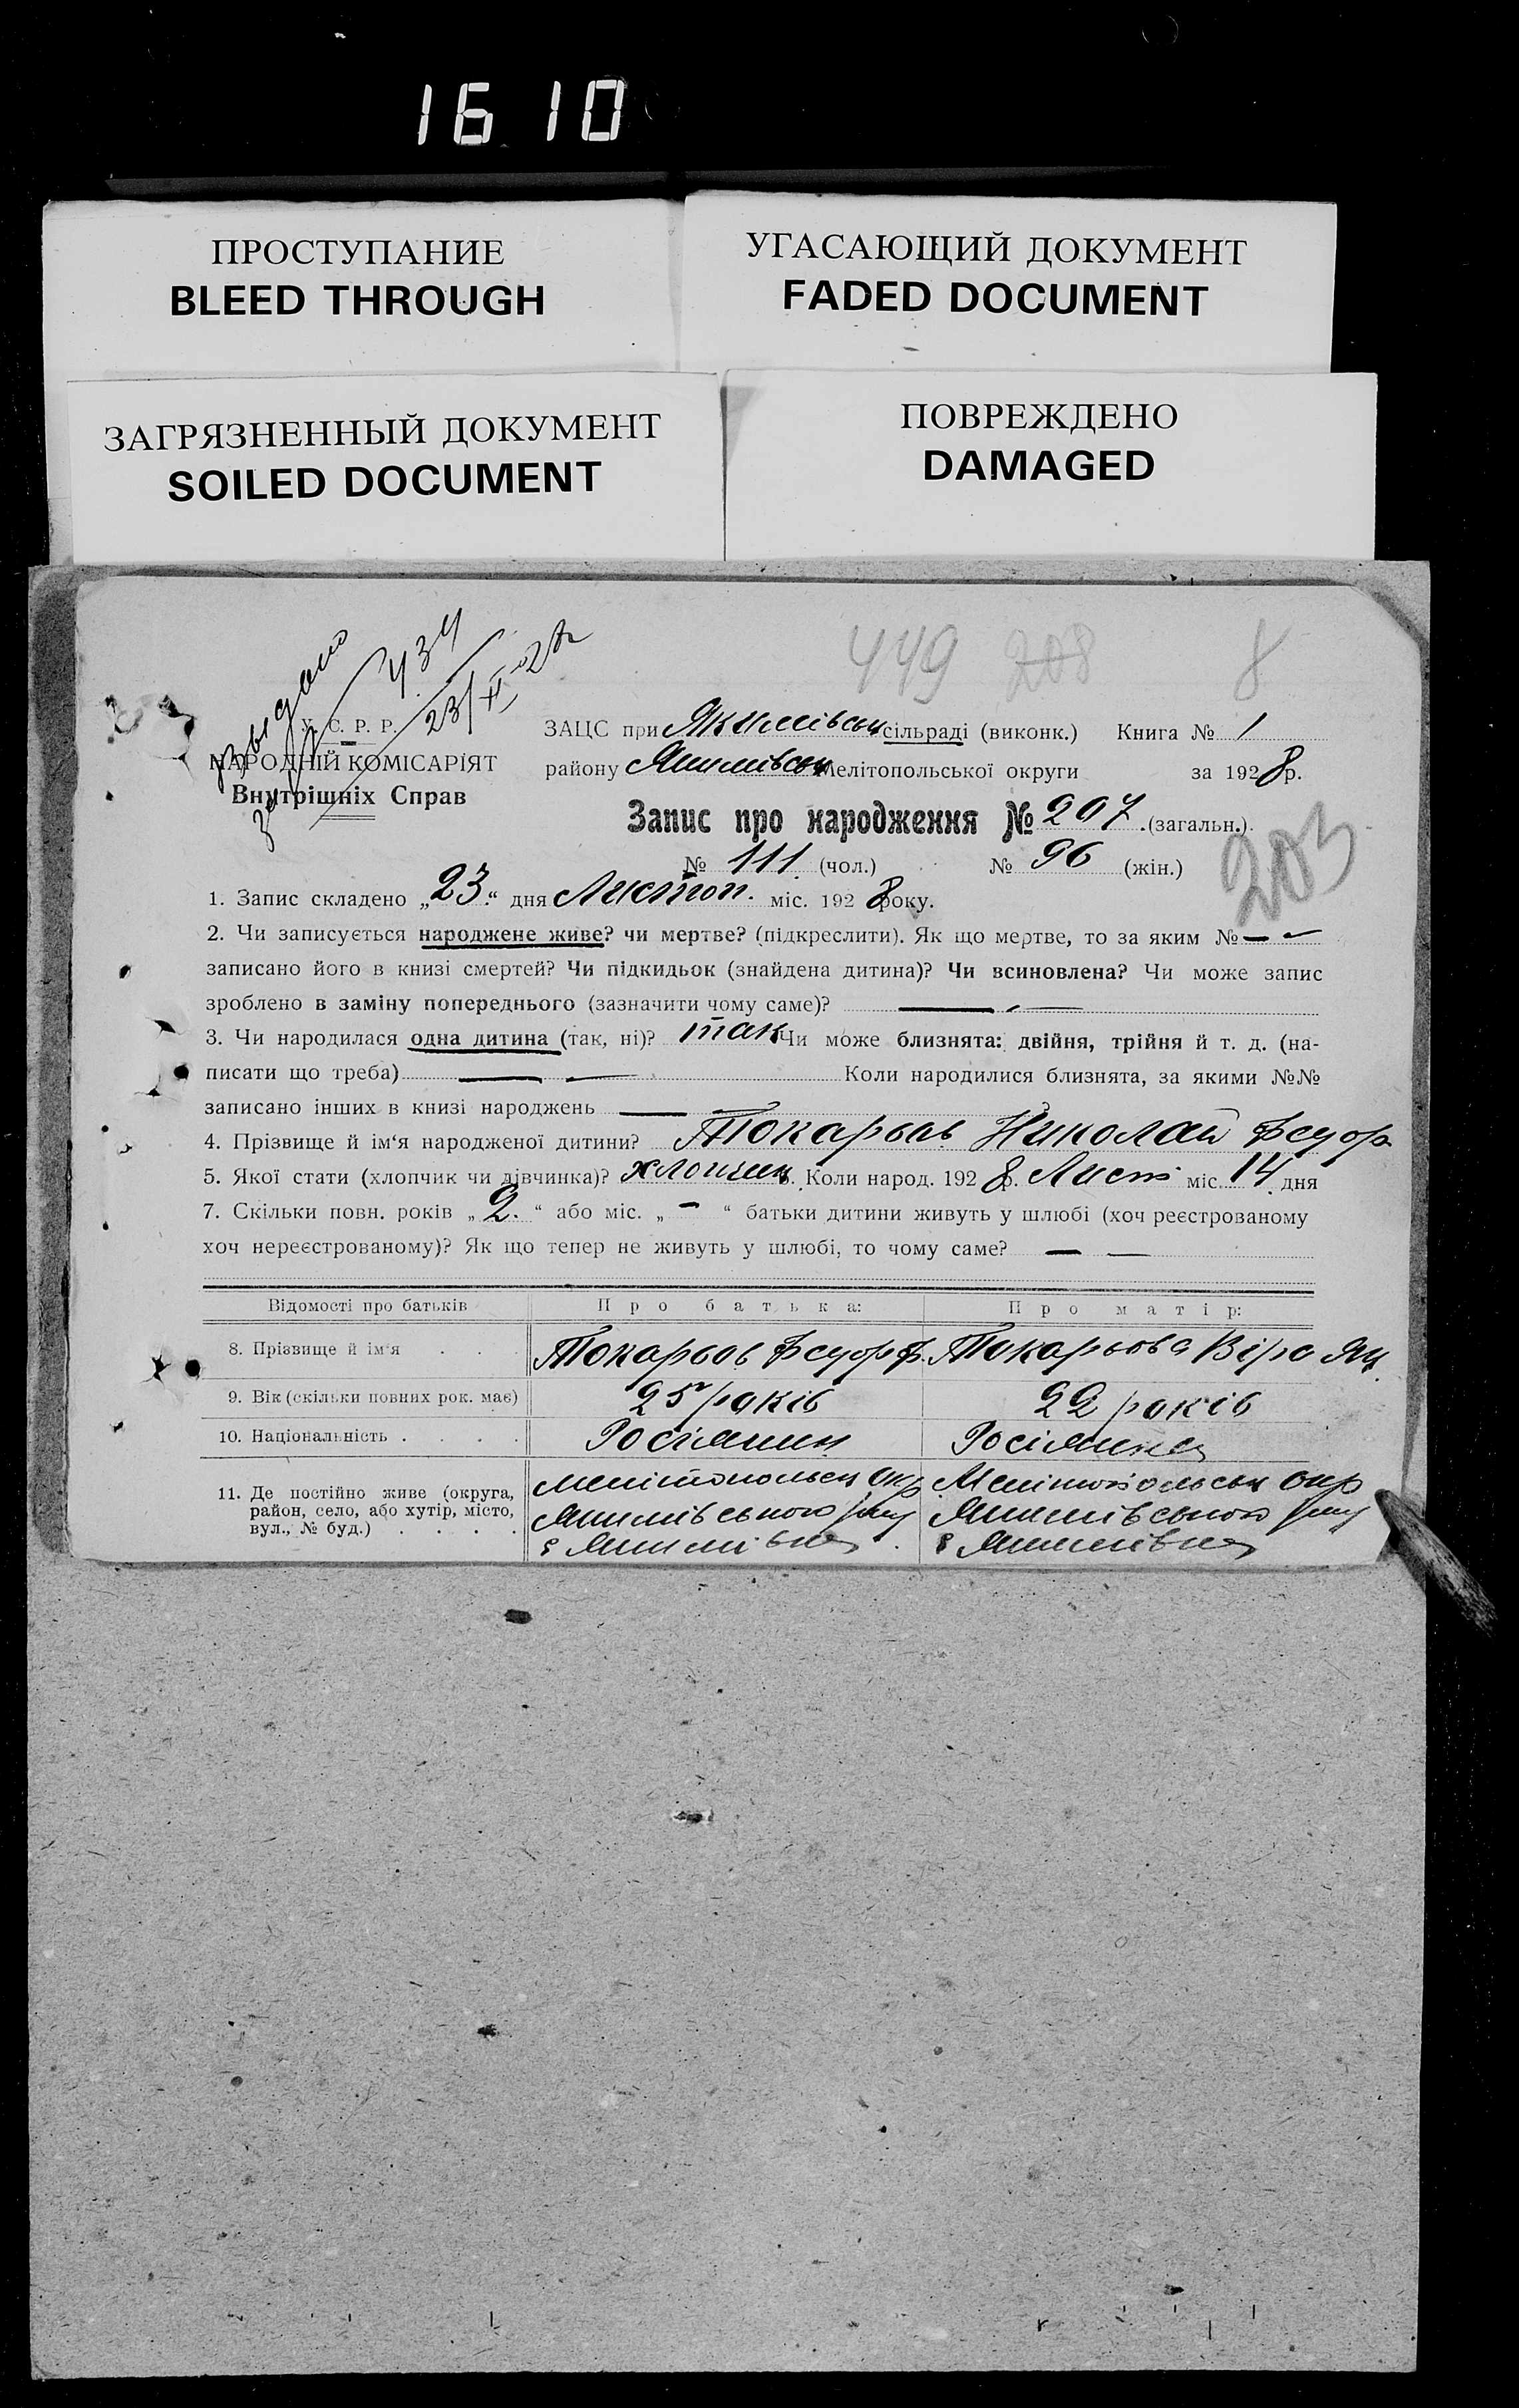 16 10
ПРОСТУПАНИЕ
BLEED THROUGH
УГАСАЮЩИЙ ДОКУМЕНТ
FADED DOCUMENT
ЗАГРЯЗНЕННЫЙ ДОКУМЕНТ
SOILED DOCUMENT
ПОВРЕЖДЕНО
DAMAGED
449 208 8
Выдано
434
23/XII
У. С. Р. Р.
НАРОДНІЙ КОМІСАРІЯТ
Внутрішніх Справ
ЗАЦС при Якимівськ сільраді (виконк.) Книга № 1
району Якимівськ Мелітопольської округи за 1928 р.
Запис про народження № 207 (загальн.).
203
№ 111 (чол.) № 96 (жін.)
1. Запис складено „23“ дня Листоп. міс. 1928 року.
2. Чи записується народжене живе? чи мертве? (підкреслити). Як що мертве, то за яким № —
записано його в книзі смертей? Чи підкидьок (знайдена дитина)? Чи всиновлена? Чи може запис
зроблено в заміну попереднього (зазначити чому саме)? —
3. Чи народилася одна дитина (так, ні)? так Чи може близнята: двійня, трійня й т. д. (на-
писати що треба) — Коли народилися близнята, за якими №№
записано інших в книзі народжень —
4. Прізвище й ім‘я народженої дитини? Токарьов Николай Федор
5. Якої стати (хлопчик чи дівчинка)? хлопчик. Коли народ. 1928 р. Лист міс. 14 дня
7. Скільки повн. років „2.“ або міс. „-“ батьки дитини живуть у шлюбі (хоч реєстрованому
хоч нереєстрованому)? Як що тепер не живуть у шлюбі, то чому саме? —
Відомості про батьків Про батька: Про матір:
8. Прізвище й ім‘я . . . Токарьов Федор Ф. Токарьова Віра Як.
9. Вік (скільки повних рок. має) 25 років 22 років
10. Національність . . . . Росіянин Росіянка
11. Де постійно живе (округа, район, село, або хутір, місто, вул., № буд.) . . . .
Мелітопольськ окр Мелітопольськ окр
Якимівського Якимівського
с Якимівка с Якимівка